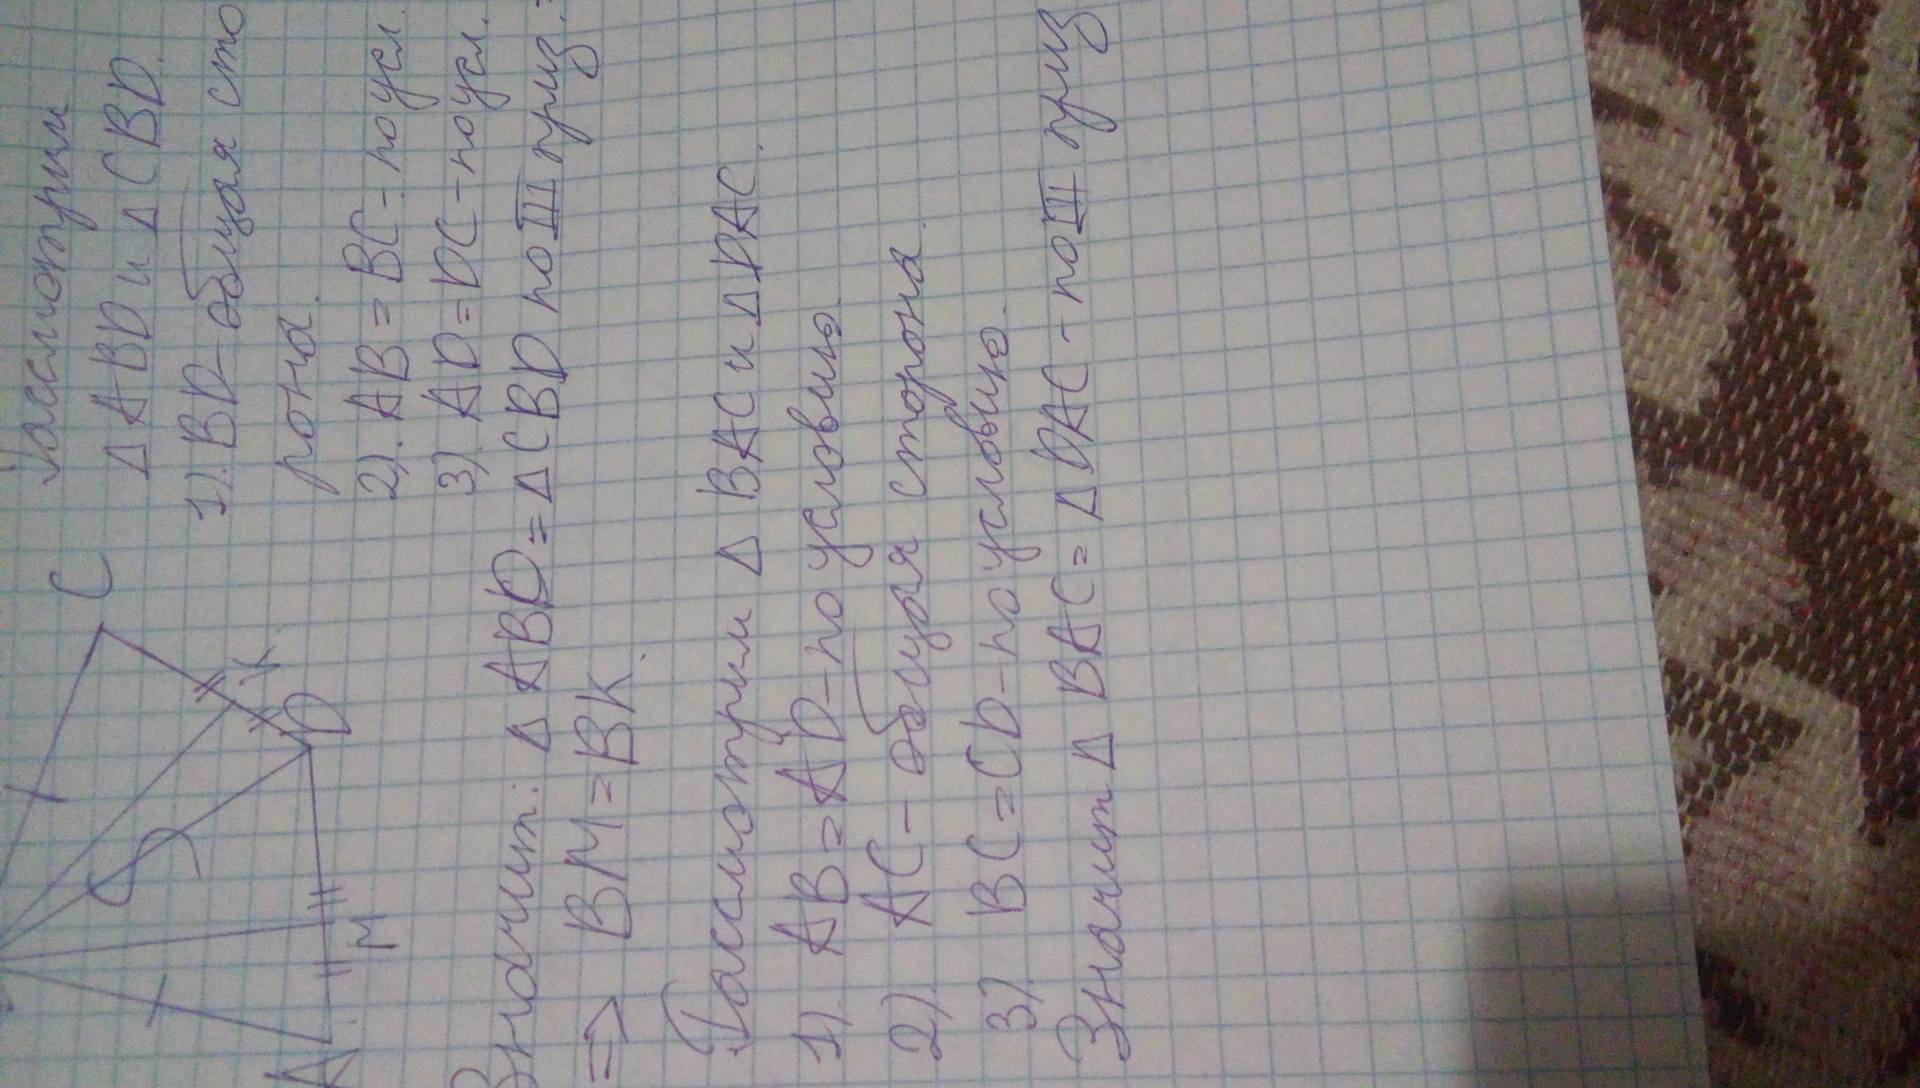 Рассмотрим
Δ ABD и Δ CBD.
1). BD - общая сто
рона.
2). AB = BC - по усл.
3). AD = DC - по усл.
C
K
D
M
A
Значит: Δ ABD = Δ CBD по III приз. =
=> BM = BK.
Рассмотрим Δ BAC и Δ DAC.
1). AB = AD - по условию.
2). AC - общая сторона.
3). BC = CD - по условию.
Значит Δ BAC = Δ DAC - по III приз